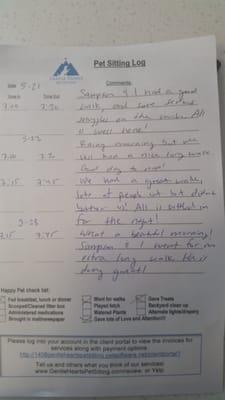 Pet Sitting Log
Date 5-21
Time In Time Out
Comments:
Sampson & I had a good
7:00 7:30 walk, and some
on the
is well here!
5-22 Rainy morning but we
7:00 still had a nice long walk.
Good day to
7:15 7:45 We had a great walk,
lots of people out but didn't
bother us! All is settled in
for the night!
5-23 What a beautiful morning!
7:15 7:45 Sampson & I went for an
extra long walk. He is
doing great!
Happy Pet check list:
Fed breakfast, lunch or dinner
Scooped/Cleaned litter box
Administered medications
Brought in mail/newspaper
Went for walks
Played fetch
Watered Plants
Gave lots of Love and Attention!!!!
Gave Treats
Backyard clean up
Alternate lights/drapery
Please log into your account in the client portal to view the invoices for
services along with payment options
Tell us and others what you think of our services!
www.GentleHeartsPetSitting.com/review: or Yelp